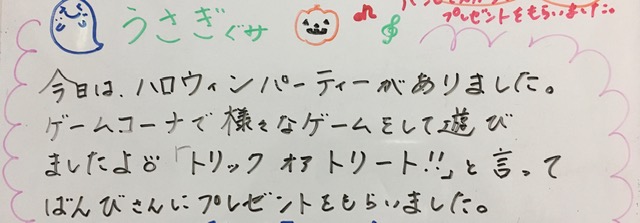 プレゼントをもらいました。
うさぎぐみ
今日は、ハロウィンパーティーがありました。
ゲームコーナで様々なゲームをして遊び
ましたよ♉「トリック オア トリート!!」と言って
ばんびさんにプレゼントをもらいました。